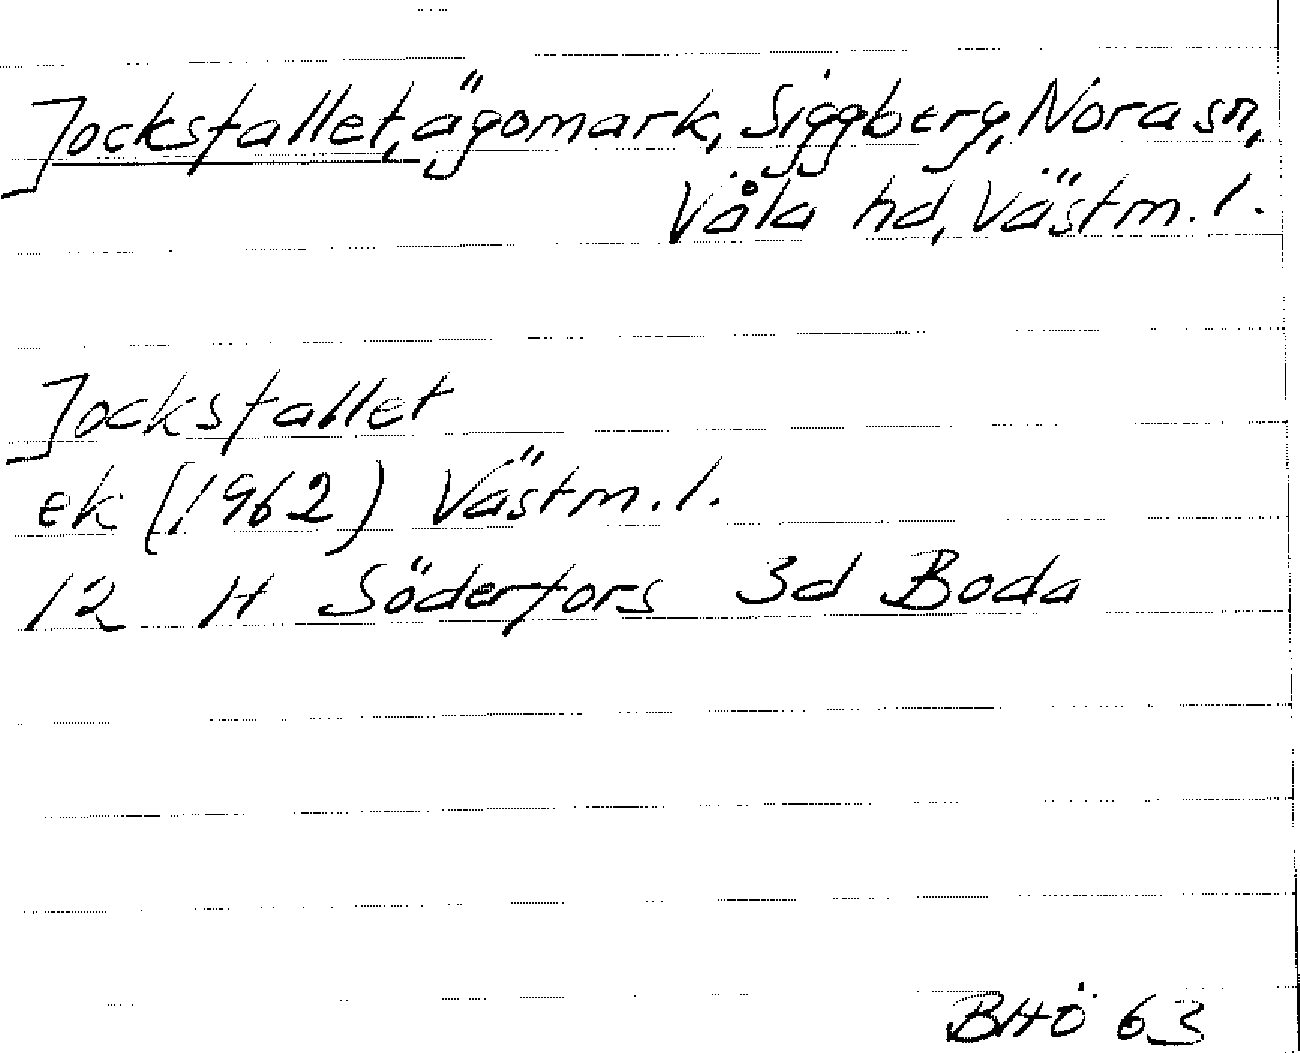 Jocksfallet, ägomark, Siggberg, Nora sn,
Våla hd, Västm. l.
Jocksfallet
ek (1962) Västm. l.
12 H Söderfors 3d Boda
BHÖ 63